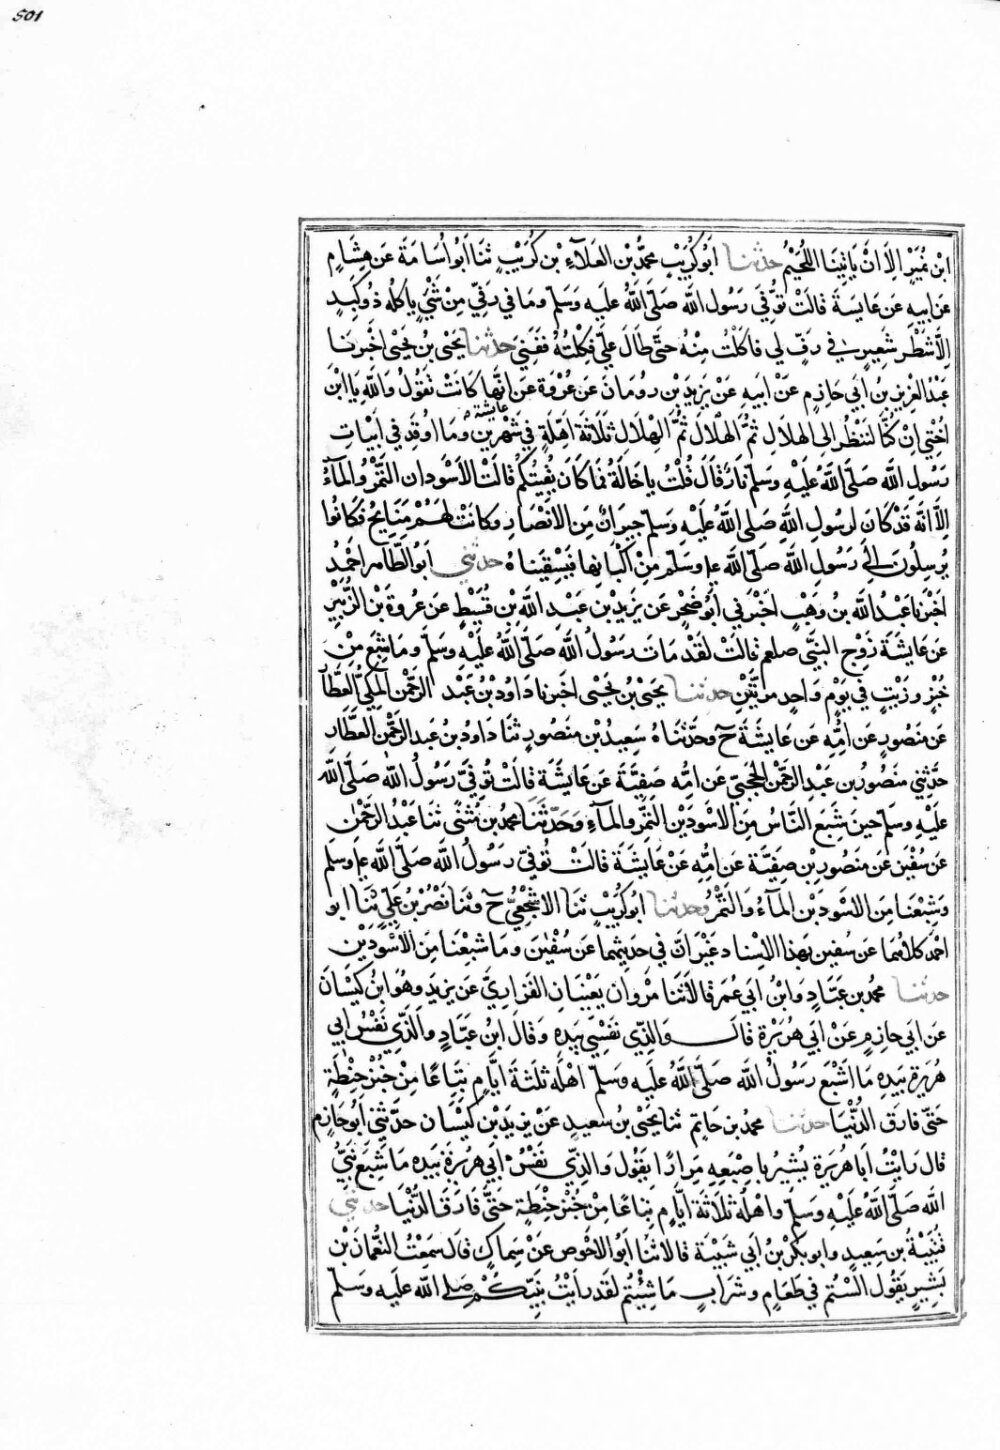 501
ابْن نُمَيْرٍ اِلاَّ اَنْ يَاتِيَنَا اللُّحَيْمُ حدثنا اَبُو كُرَيْبٍ محمَّدُ بْن العَلاَءِ بْن كُرَيْبٍ ثَنَا اَبُو اُسَامَةَ عَن هِشَامٍ
عَن اَبِيهِ عَن عَايشَةَ قالَتْ تُوُفِّيَ رَسُول الله صَلَّى اللهُ عليهِ وَسَلَّم ومَا في رَفِّي مِنْ شَيْءٍ يَاكُلُه ذُو كَبِدٍ
اِلاَّ شَطْر شَعِيرٍ في رَفٍّ لي فاكَلْتُ مِنْهُ حَتَّى طَالَ عَلَيَّ فَكِلْتُهُ فَفَنِيَ حدثنا يَحْيَى بن يَحْيى اَخْبرَنا
عَبْدُ العَزِيزِ بنُ اَبي حَازِمٍ عَنْ اَبيهِ عَنْ يَزِيدَ بْن رُومَانَ عَن عُرْوَةَ عَن عايشة اَنَّها كَانَتْ تَقُولُ وَاللهِ يَا ابْنَ
اُخْتِي اِنْ كُنَّا لَنَنْظُرُ اِلى الهِلاَلِ ثُمَّ الهِلاَلَ ثُمَّ الهِلاَل ثَلاَثَةَ اَهِلَّةٍ فِي شَهْرَيْن ومَا اُوقِدَ في اَبْيَاتِ
رَسُولِ الله صَلَّى اللهُ عَليْهِ وَسَلَّم نَارٌ قَالَ قُلْتُ يا خَالَةُ فَمَا كَان يُعِيشُكُمْ قالَتْ الأسْوَدان التَّمْرُ وَالمَآءُ
اِلاَّ اَنَّه قَدْ كَانَ لِرَسُولِ اللهِ صَلى اللهُ عَلَيْهِ وَسَلَّم جِيرَانٌ مِنَ الاَنْصَارِ وكَانَتْ لَهُمْ مَنَايِحُ فَكَانُوا
يُرْسِلُونَ اِلَى رَسُولِ اللهِ صَلَّى اللهِ عليه وَسَلَّم مِنْ اَلْبَانِها فَيَسْقِينَاهُ حدثني اَبو الطَّاهِر اَحْمَدُ
اَخْبَرَنا عَبْدُ الله بنُ وَهْبٍ اَخْبَرَنِي اَبُو صَخْرٍ عَن يَزِيدَ بْن عَبْد الله بْن قُسَيْطٍ عَن عُروةَ بْن الزُّبَيْر
عَن عَايشَةَ زَوْج النَّبِيّ صلعم قالَتْ لَقَدْ مَاتَ رَسُولُ اللهِ صَلَّى اللهُ عَلَيْهِ وسَلَّم ومَا شَبِعَ مِنْ
خُبْزٍ وزَيْتٍ في يَوْمٍ وَاحِدٍ مَرَّتَيْنِ حدثنا يَحْيَى بْن يَحْيَى اَخبَرنا دَاوُدُ بْنُ عَبْد الرَّحْمَنِ المكِّيُّ العَطَّارُ
عَن مَنصُورٍ عَن اُمِّهِ عَن عَايشَةَ ح وحَدَّثَنَاهُ سَعِيدُ بْن مَنصُورٍ ثنَا دَاوُدُ بْن عَبد الرَّحْمَن العَطَّار
حَدَّثَنِي مَنصُورُ بن عَبْد الرَّحْمَنِ الحَجَبِيّ عَن اُمِّه صَفِيَّةَ عَن عَايشَةَ قالَتْ تُوُفِّيَ رَسُولُ اللهِ صَلَّى اللهُ
عَلَيْهِ وسَلَّم حينَ شَبِعَ النَّاسُ مِنَ الاَسْوَدَيْن التَّمْر والمَآءِ وَحَدَّثَنَا محمدُ بن مُثَنًّى ثنَا عَبْدُ الرَّحْمن
عَن سُفْينَ عَن مَنصُورِ بْن صَفِيَّةَ عَن اُمِّهِ عَنْ عَايشَةَ قَالَتْ تُوُفّيَ رَسُولُ اللهِ صَلَّى اللهُ عليه وسَلَّم
وشَبِعْنَا مِنَ الاَسْوَدَيْن المآءُ وَالتَّمْرُ وحدثنا اَبُو كُرَيْبٍ ثَنَا الاَشْجَعِيُّ ح وثنا نَصْرُ بْن عَلِيٍّ ثَنَا اَبو
اَحْمَد كلاَهُمَا عَن سُفينَ بهَذَا الاِسْنَادِ غَيْرَ اَنَّ في حَدِيثهما عَن سُفْيٰنَ ومَا شَبِعْنَا مِنَ الاَسْوَدَيْن
حدثنا محمد بن عَبَّادٍ وَابْنُ اَبي عُمَر قالاَ ثَنَا مَرْوَان يَعْنِيَانِ الفَزَارِيَّ عَن يَزِيدَ وهُوَ ابنُ كَيْسَانَ
عَن اَبي حازِمٍ عَنْ اَبي هُرَيْرةَ قالَ وَالَّذِي نَفْسِي بيَدِه وَقَالَ ابْنُ عَبَّادٍ والَّذِي نَفْسُ اَبي
هُرَيرَةَ بيَدِهِ مَا اَشْبَعَ رَسُولُ اللهِ صَلَّى اللهُ عَلَيهِ وسَلَّم اَهْلَهُ ثَلثَةَ اَيَّامٍ تِبَاعًا مِنْ خُبْزِ حِنْطَةٍ
حَتَّى فارَقَ الدُّنْيَا حدثنا محمد بن حَاتِمٍ ثنا يَحْيَى بْن سَعِيدٍ عَنْ يَزِيدَ بْن كَيْسَانَ حدَّثَنِي اَبُو حَازِمٍ
قال رَايْتُ اَبا هُرَيْرَةَ يُشِيرُ باِصْبَعِهِ مِرَارًا يَقُولُ وَالَّذِي نَفْسُ اَبي هُرَيْرَةَ بيَدِهِ مَا شَبِعَ نَبيُّ
الله صَلَّى اللهُ عَلَيْهِ وسَلَّم واَهْلُهُ ثَلاَثَةَ اَيَّامٍ تِبَاعًا مِنْ خُبْزِ حِنْطَةٍ حَتَّى فَارَقَ الدُّنْيَا حدثني
قُتَيْبَةُ بن سَعِيدٍ وابو بَكْرِ بْنُ اَبي شَيْبَةَ قالاَ ثَنَا اَبُو الاَحْوَصِ عَنْ سِمَاكٍ قالَ سَمِعْتُ النُّعْمانَ بْن
بَشِيرٍ يَقُولُ اَلَسْتُم في طَعَامٍ وشَرَابٍ مَا شِئْتُم لقَد رَاَيْتُ نَبيَّكُمْ صلى اللهُ عَلَيه وَسَلَّم